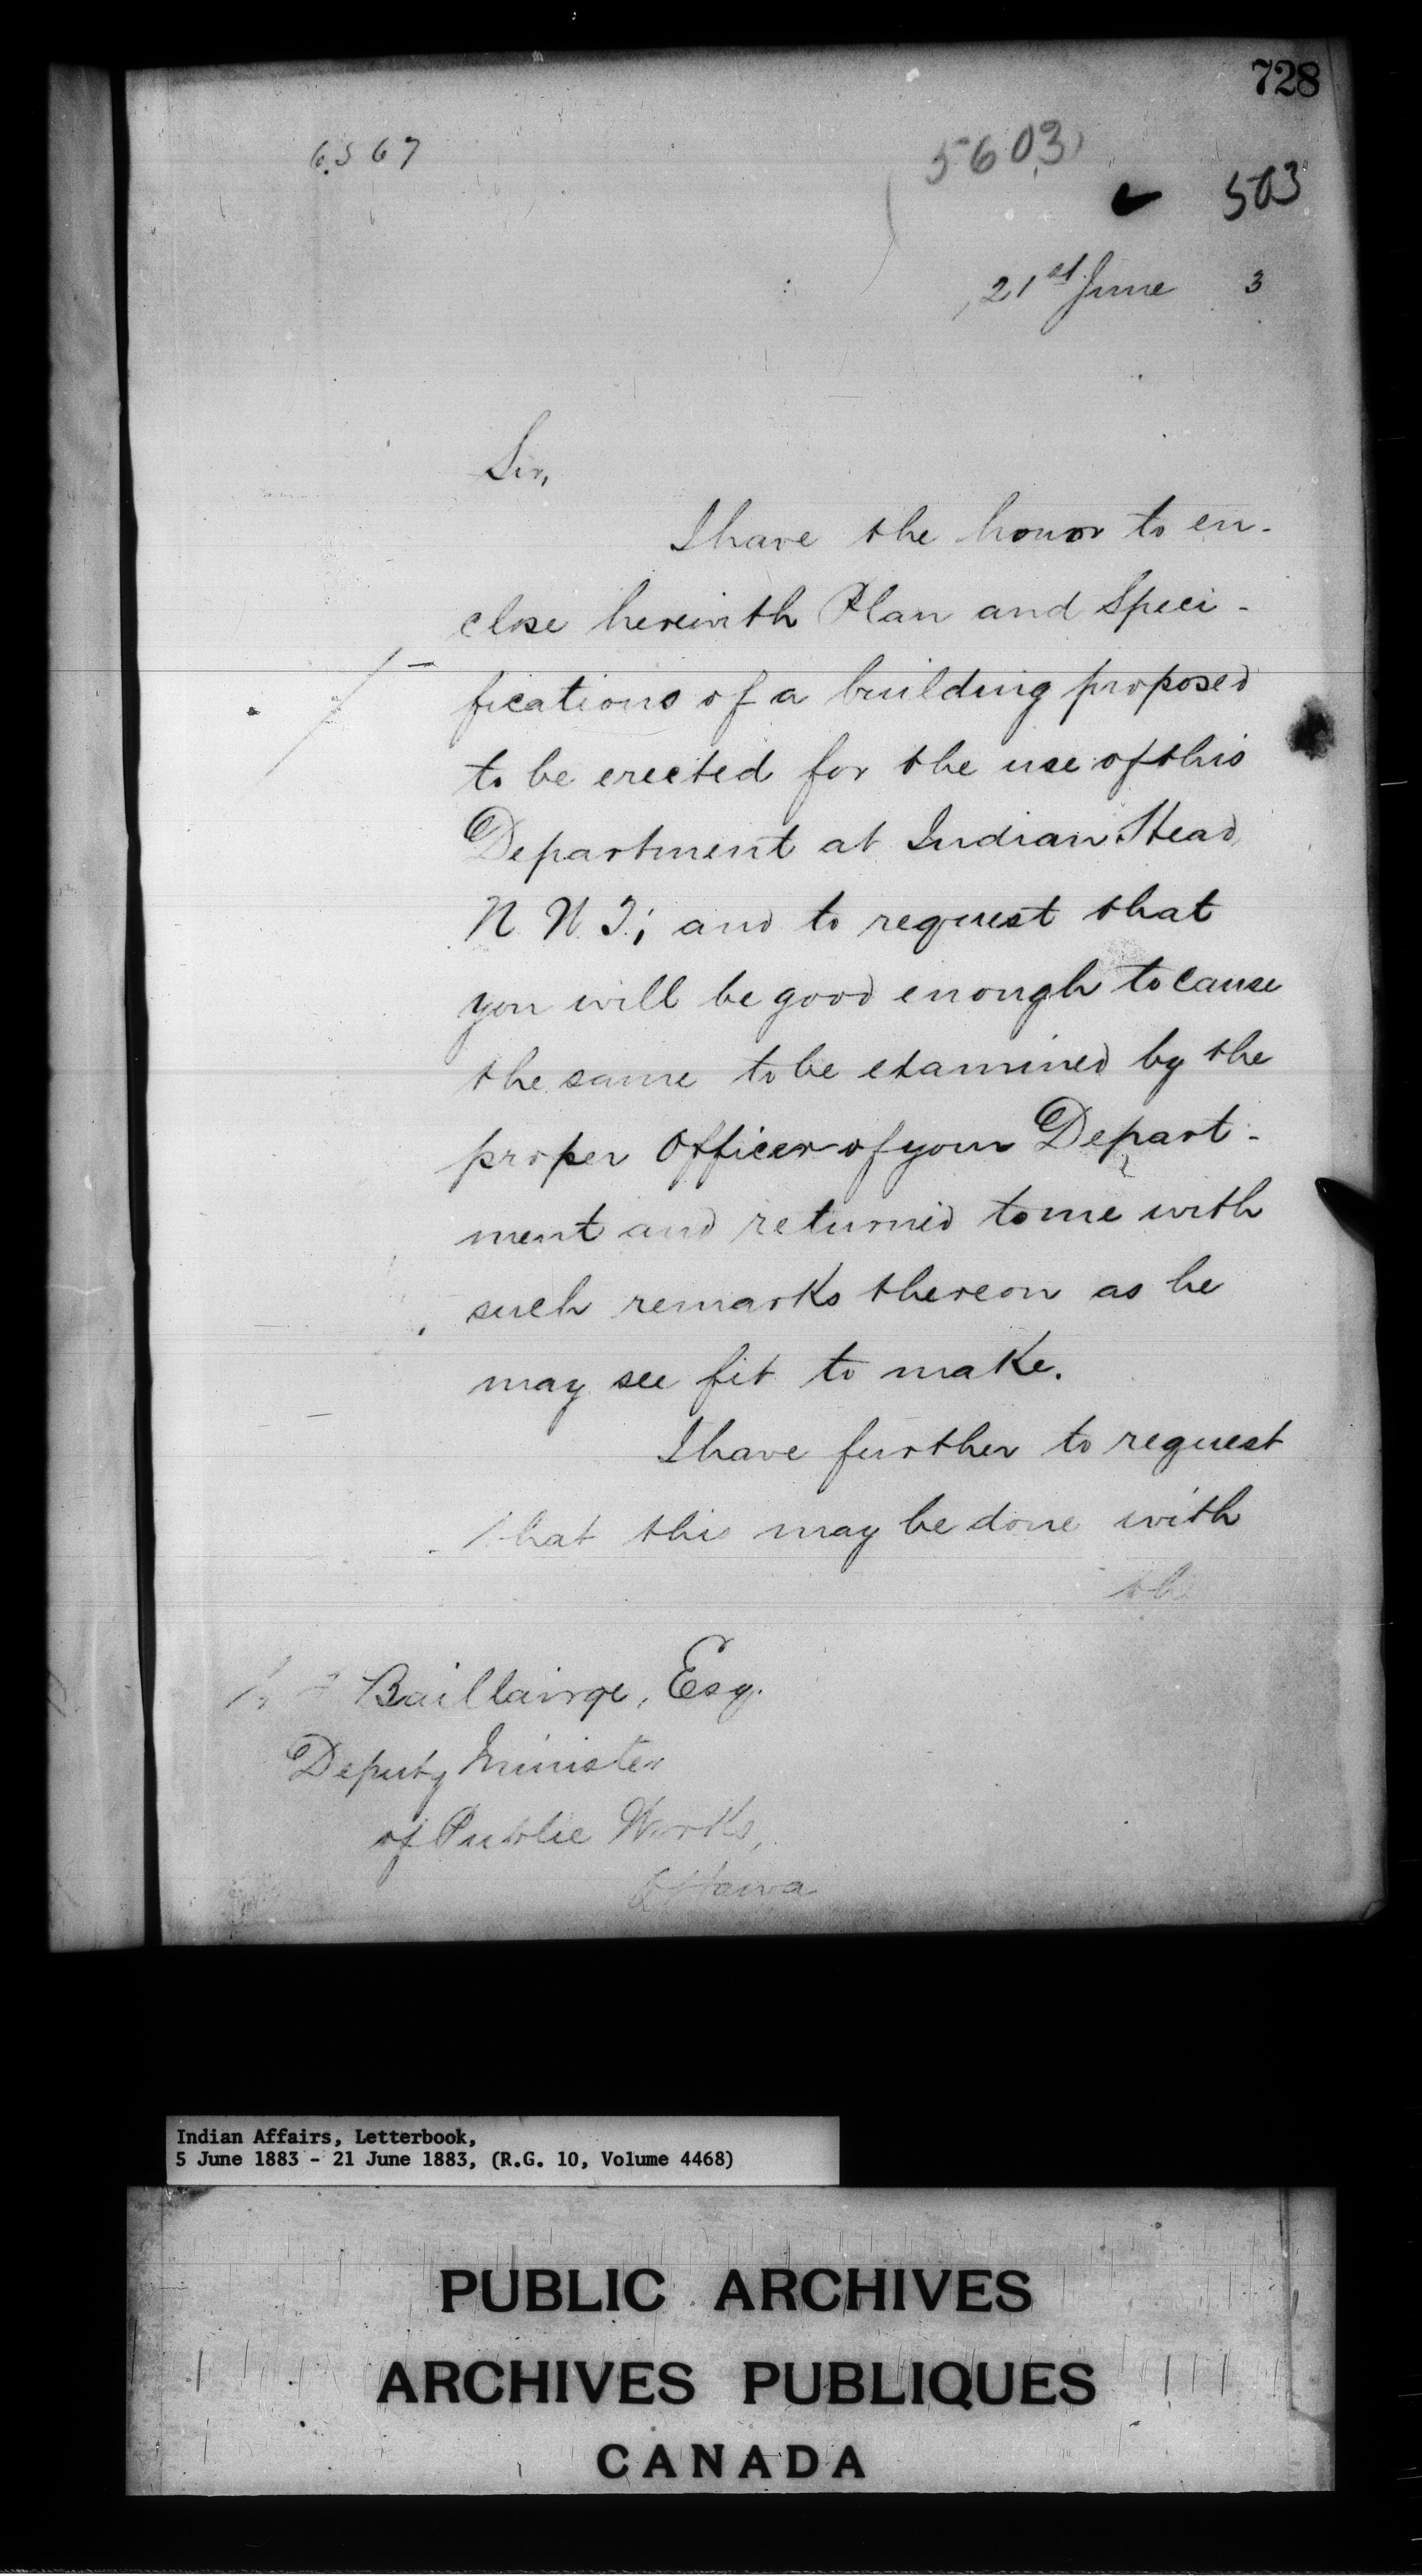 728
6567
5603
503
21st June 3
Sir,
I have the honor to en-
close herewith Plan and Speci-
fications of a building proposed
to be erected for the use of this
Department at Indian Head,
N. W. T.; and to request that
you will be good enough to cause
the same to be examined by the
proper Officer of your Depart-
ment and returned to me with
such remarks thereon as he
may see fit to make.
I have further to request
that this may be done with
the
Baillairge, Esq.
Deputy Minister
of Public Works,
Ottawa
Indian Affairs, Letterbook,
5 June 1883 - 21 June 1883, (R.G. 10, Volume 4468)
PUBLIC ARCHIVES
ARCHIVES PUBLIQUES
CANADA